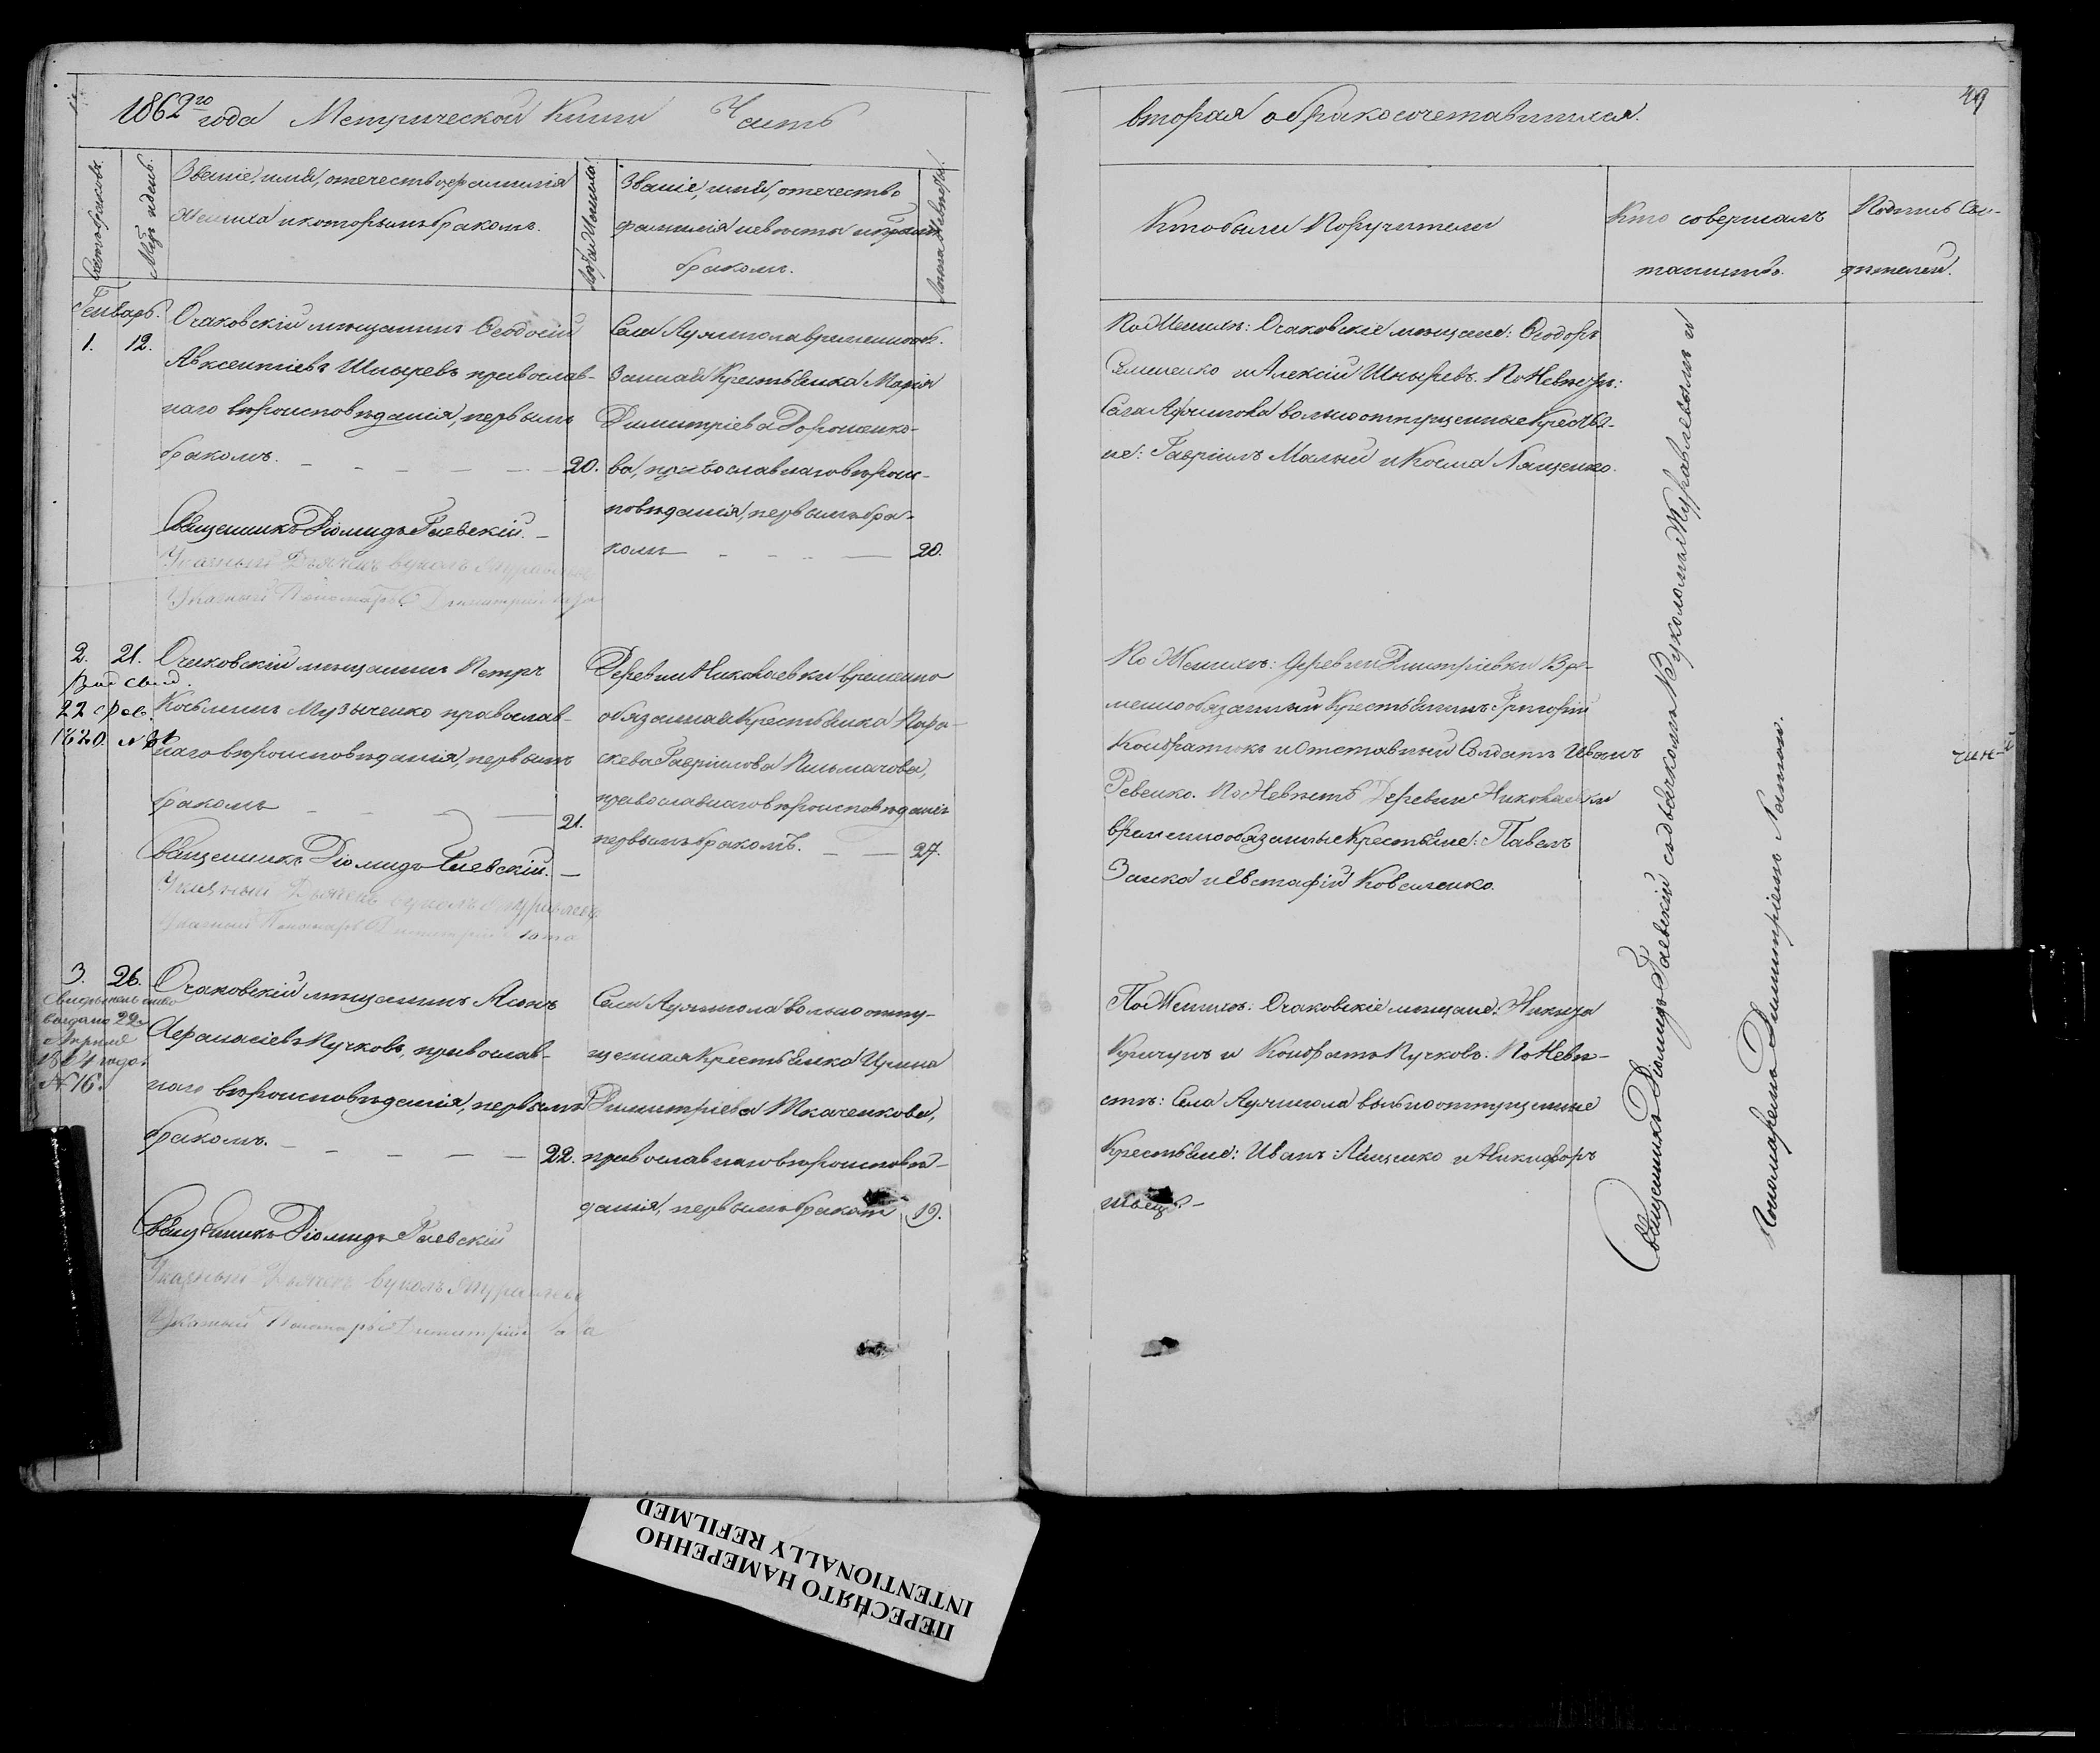 1862го года Метрической Книги Часть
вторая о бракосочетавшихся.
49
Счетъ браковъ.
Мѣс. и день.
Званіе, имя, отечество, фамилія
жениха и которымъ бракомъ.
Лѣта Жениха.
Званіе, имя, отечество
фамилія невѣсты и которымъ
бракомъ.
Лѣта Невѣсты.
Кто были Поручители
Кто совершалъ
таинство.
Подпись Сви-
дѣтелей.
Генварь.
1. 12.
Очаковскій мѣщанинъ Ѳеодосій
Авксентіевъ Шныревъ православ-
наго вѣроисповѣданія, первымъ
бракомъ. 20.
Священникъ Діомидъ Гаевскій.
Указный Дьячекъ Вуколъ Журавлевъ
Указный Пономарь Димитрій
Села Аджигола временнооб.
занная Крестьянка Марія
Димитріева Дорошенко-
ва, православнаго вѣроис-
повѣданія, первымъ бра-
комъ 20.
По Женихѣ: Очаковскіе мѣщане: Ѳеодоръ
Семененко и Алексій Шныревъ. По Невѣстѣ:
Села Аджигола вольноотпущенные Крестья-
не: Гавріилъ Малый и Косма Лященко.
2. 21.
Выд свид.
22 Фев.
Очаковскій мѣщанинъ Петръ
Косьминъ Музыченко православ-
наго вѣроисповѣданія, первымъ
бракомъ 21.
Священникъ Діомидъ Гаевскій.
Указный Дьячекъ Вуколъ Журавлевъ
Указный Пономарь Димитрій
Деревни Николаевки временно
обязанная Крестьянка Пара-
скева Гавріилова Письмачова,
православнаго вѣроисповѣданія
первымъ бракомъ. 27.
По Женихѣ: деревни Дмитріевки Вре-
меннообязанный Крестьянинъ: Григорій
Кондратюкъ и Отставный Солдатъ Иванъ
Ревенко. По Невѣстѣ Деревни Николаевки
временнообязанные Крестьяне: Павелъ
Заика и Евстафій Коваленко.
3. 26.
Свидѣтельство
выдано 22
Апреля
года
№ 16.
Очаковскій мѣщанинъ
Афанасіевъ Пучковъ, православ-
наго вѣроисповѣданія, первымъ
бракомъ. 22.
Священникъ Діомидъ Гаевскій
Указный Дьячекъ Вуколъ Журавлевъ
Указный Пономарь Димитрій
Села Аджигола вольноотпу-
щенная Крестьянка Ирина
Димитріева Ткаченкова,
православнаго вѣроисповѣ-
данія, первымъ бракомъ 19.
По Женихѣ: Очаковскіе мѣщане: Никита
Кричунъ и Кондратъ Пучковъ. По Невѣ-
стѣ: Села Аджигола вольноотпущенные
Крестьяне: Иванъ Лященко и Никифоръ
Швецъ.
Священникъ Діомидъ Гаевскій съ дьячкомъ Вуколомъ Журавлевымъ и
Пономаремъ Димитріемъ
ПЕРЕСНЯТО НАМЕРЕННО
INTENTIONALLY REFILMED